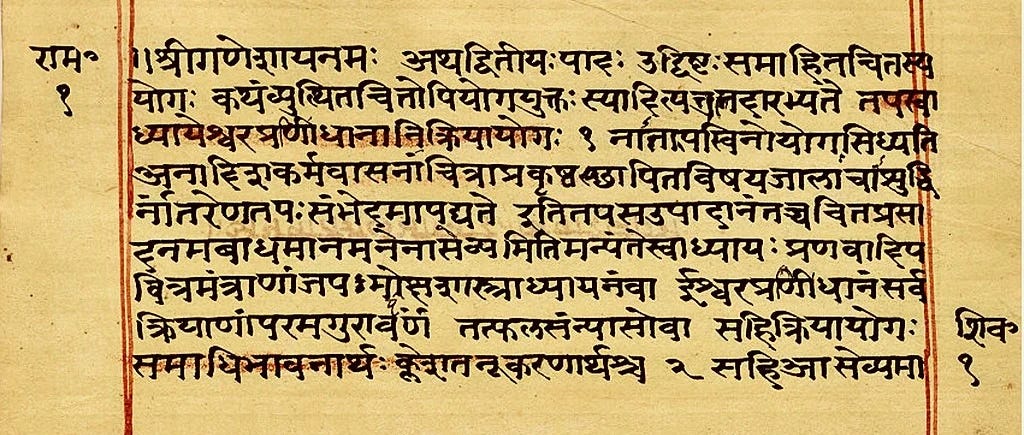 राम॰
१
॥श्रीगणेशायनमः अथद्वितीयःपादः उद्दिष्टःसमाहितचितस्य
योगः कथंव्युत्थितचित्तोपियोगयुक्तःस्यादित्येततदारभ्यतै तपस्वा
ध्यायेश्वरप्रणीधानानिक्रियायोगः १ नातापस्विनोयोगःसिध्यति
अनादिक्लेशकर्मवासनाचित्राप्रत्युपस्थापितविषयजालाचाशुद्धि
र्नांतरेणतपःसंभेदमापद्यते इतितपसउपादानंतच्चचितप्रसा
दनमबाधमानमनेनासेव्यमितिमन्यंतेस्वाध्यायः प्रणवादिप
वित्रमंत्राणांजपःमोक्षशास्त्राध्यायनंवा ईश्वरप्रणीधानंसर्व
क्रियाणांपरमगुरावर्पणं तत्फलसंन्यासोवा सहिक्रियायोगः
समाधिभावनार्थः क्लेशतनूकरणार्थश्च २ सहिआसेव्यमा
शिव॰
१